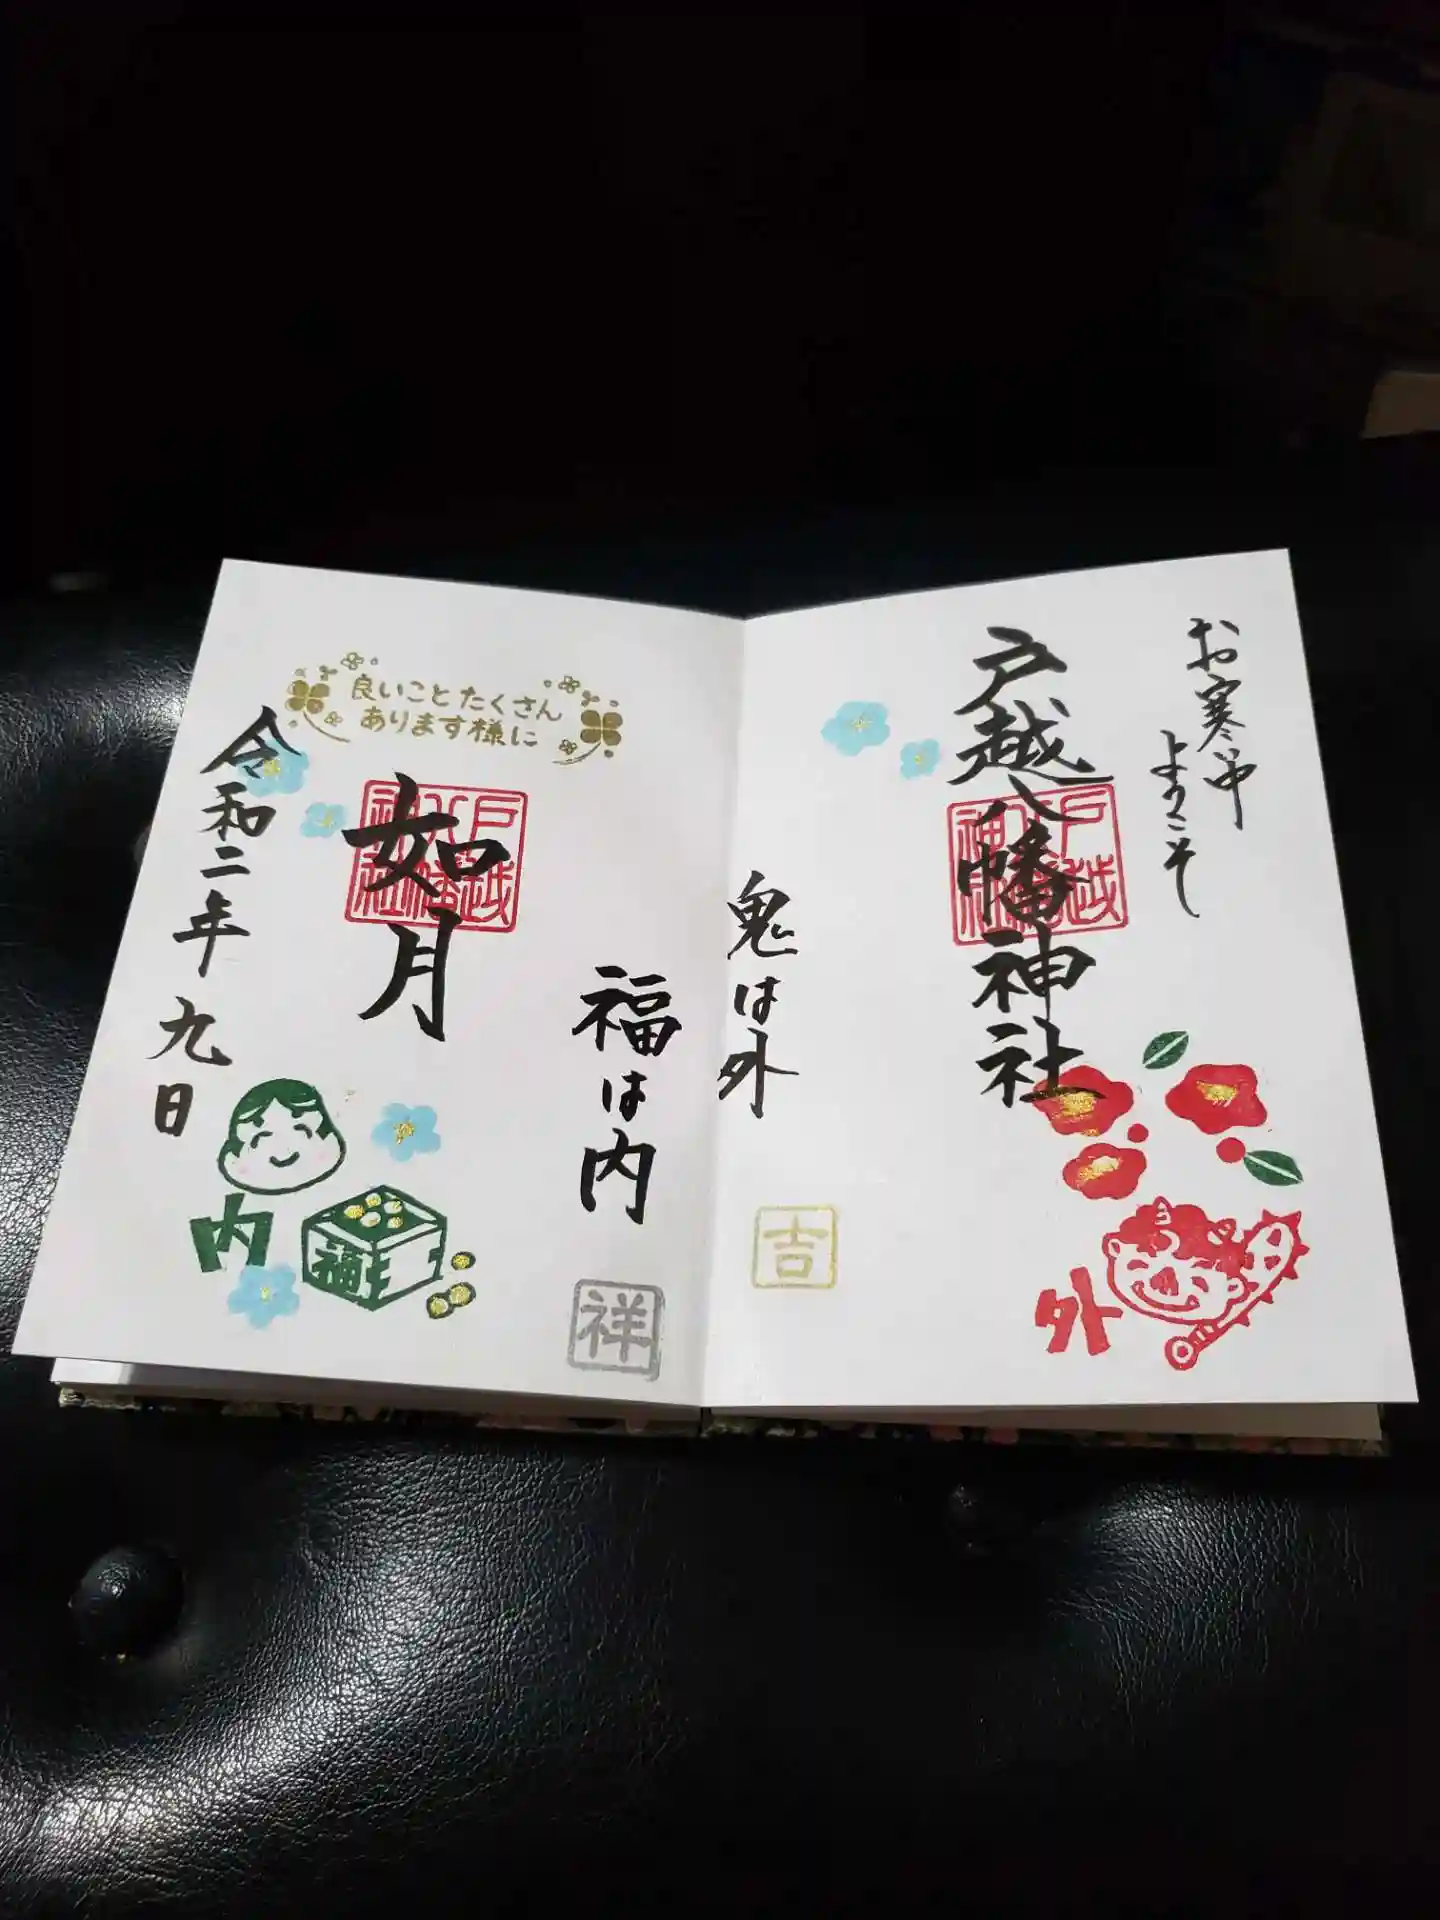 お寒い中
ようこそ
戸越八幡神社
戸越
八幡
神社
外
鬼は外
吉
福は内
祥
良いことたくさん
あります様に
如月
戸越
八幡
神社
令和二年 九日
内
福